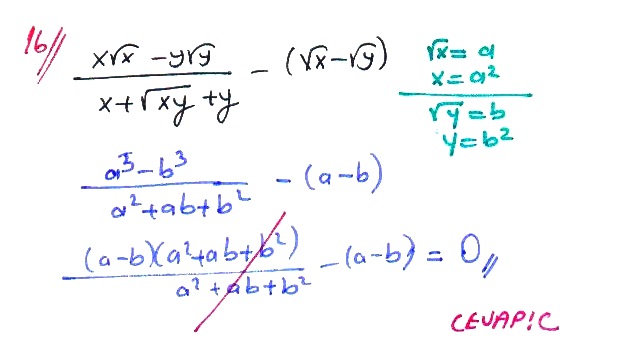 16//
x√x - y√y / x + √xy + y - (√x - √y)
√x = a
x = a²
√y = b
y = b²
a³ - b³ / a² + ab + b² - (a - b)
(a - b)(a² + ab + b²) / a² + ab + b² - (a - b) = 0//
CEVAP: C